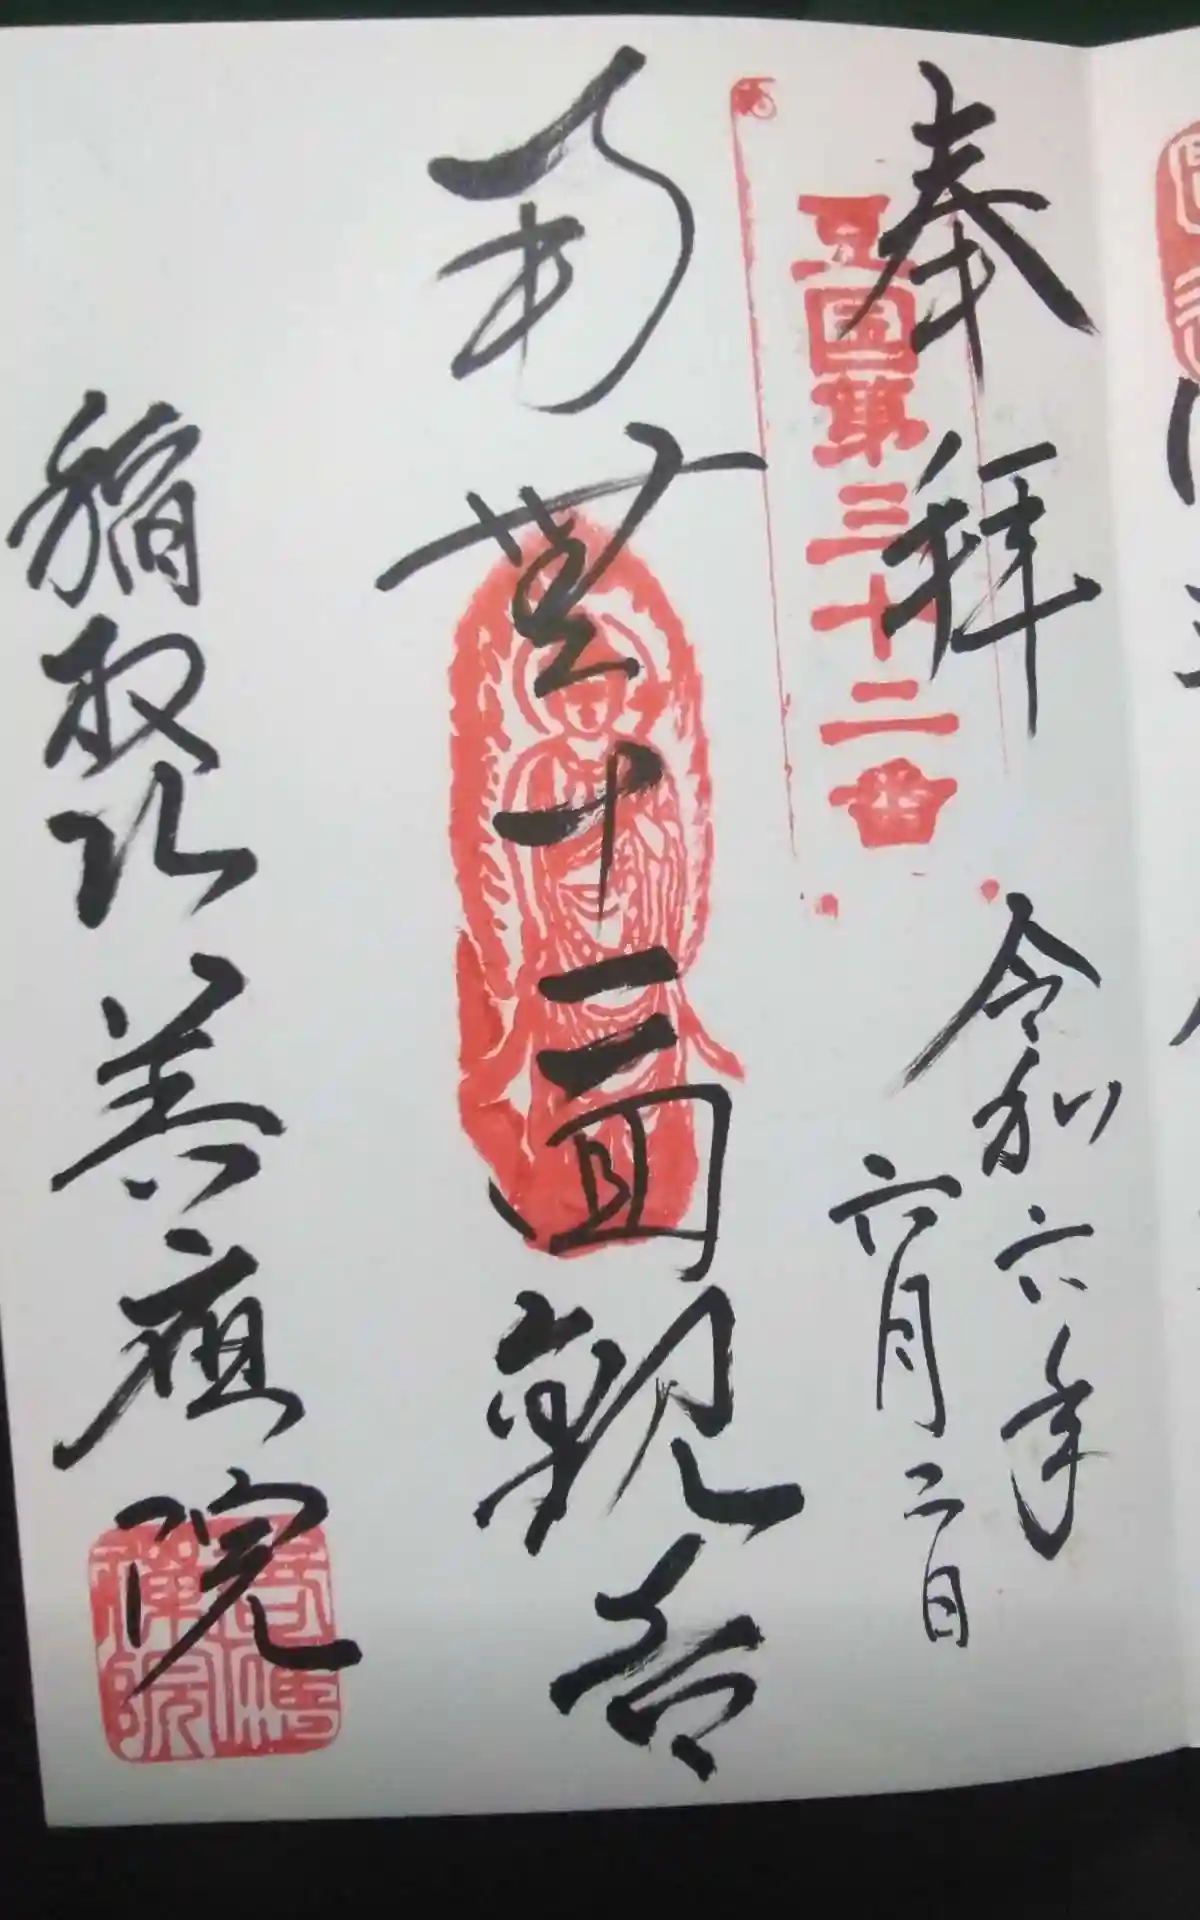 奉拝
豆国第三十二番
令和六年
六月二日
南無十一面観音
稲取山善應院
善應禪院